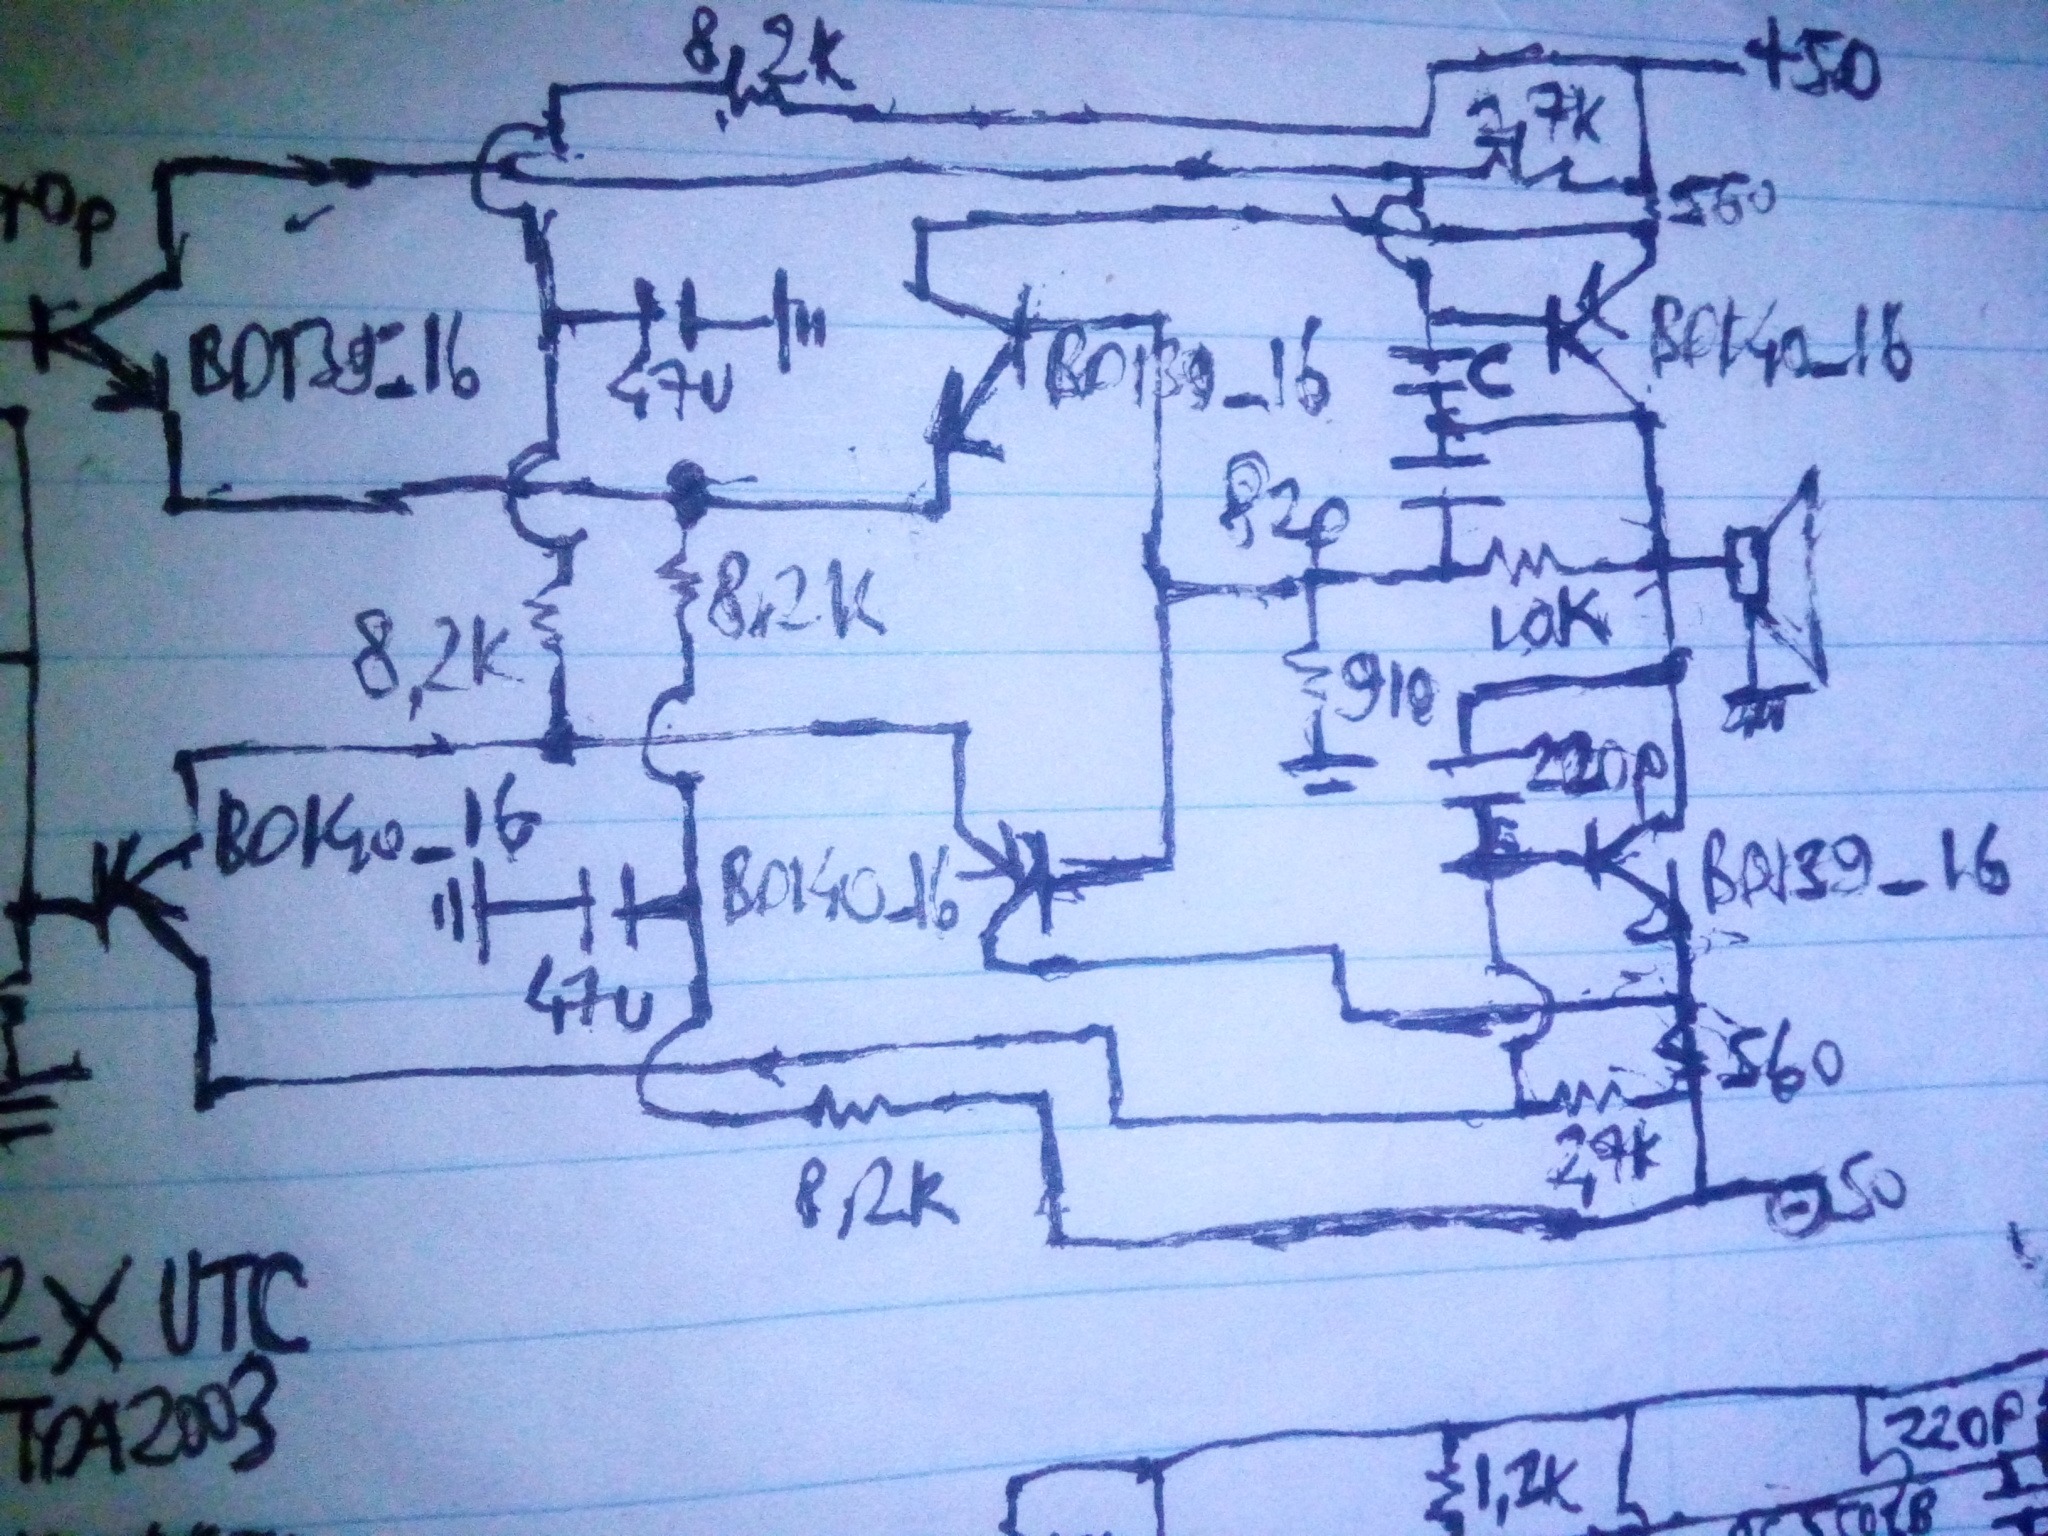 8,2K
+50
2,7K
560
BD139_16
47U
BD139_16
C
BD140_16
82p
8,2K
8,2K
10K
910
220p
BD140_16
BD140_16
BD139_16
47U
560
2,7K
8,2K
-50
2X UTC
TDA2003
1,2K
220P